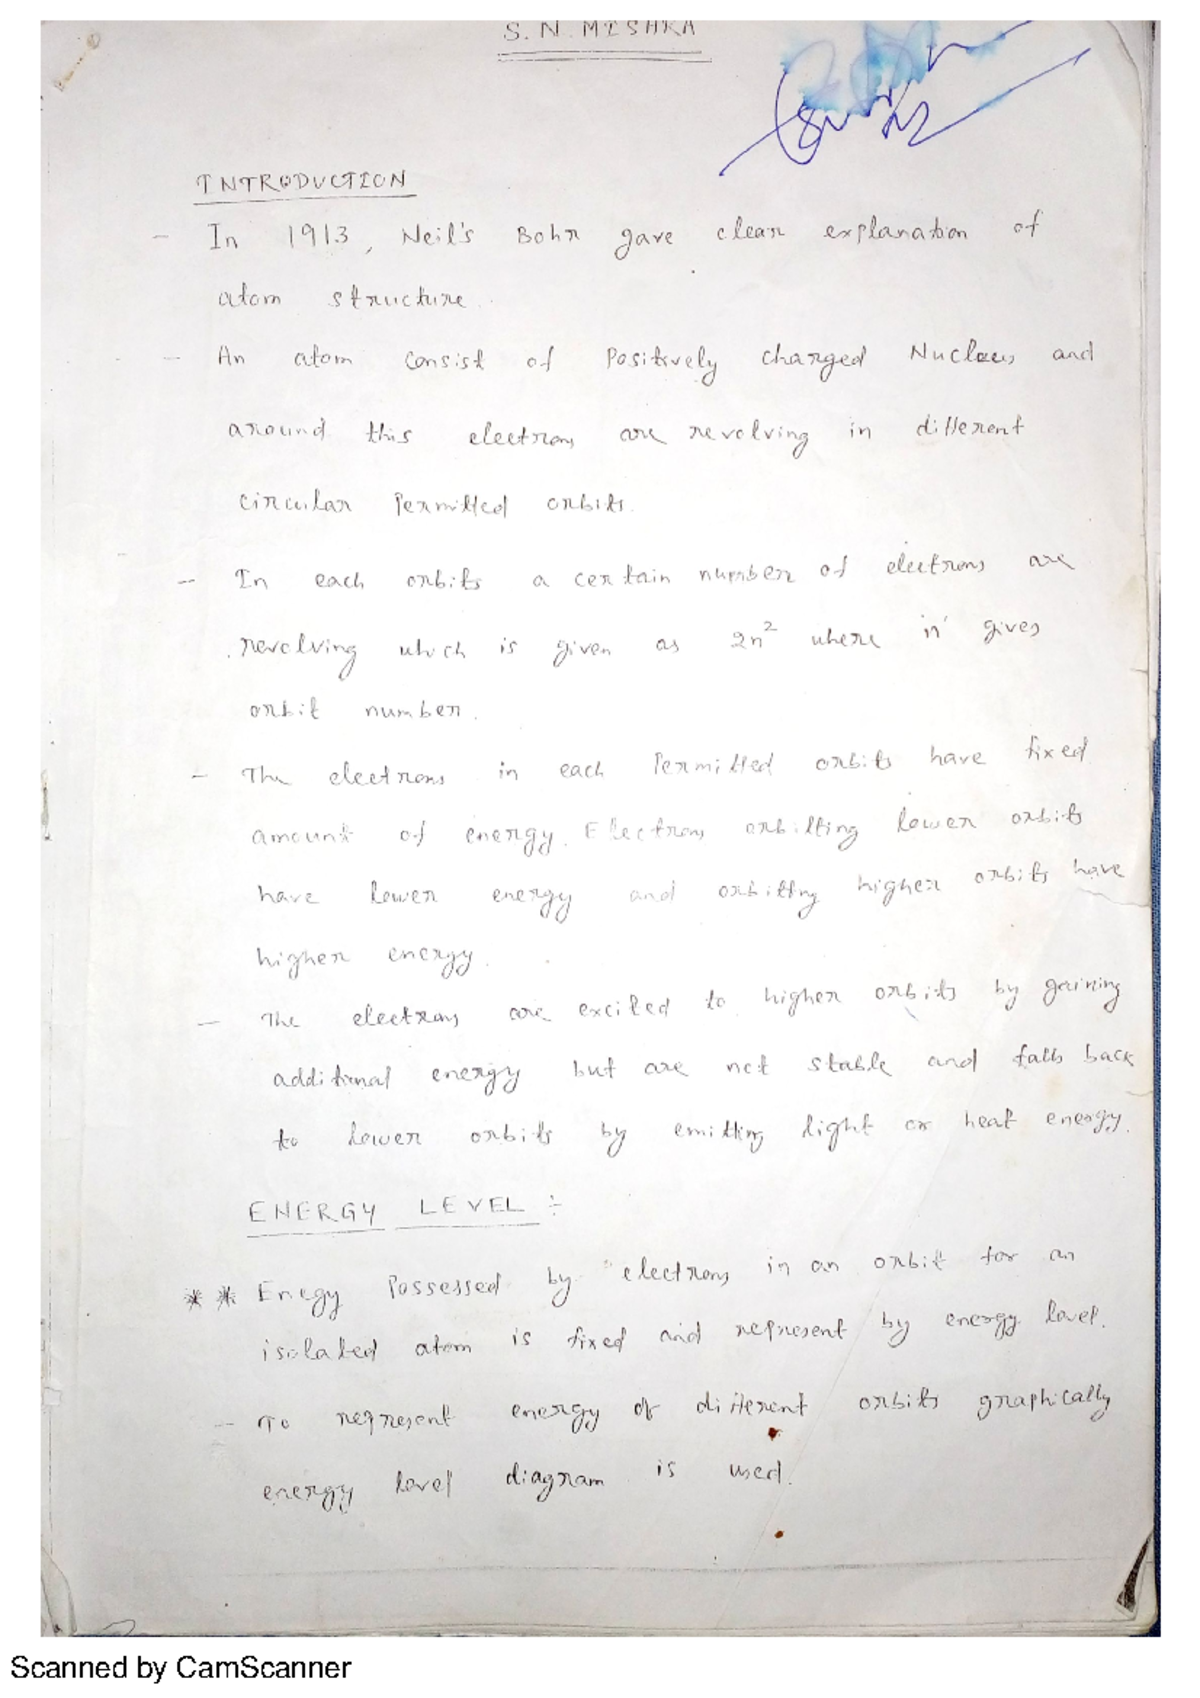 S. N. MISHRA
INTRODUCTION
- In 1913, Neil's Bohr gave clear explanation of
atom structure.
- An atom consist of Positively charged Nucleus and
around this electrons are revolving in different
circular Permitted orbits.
- In each orbits a certain number of electrons are
revolving which is given as 2n² where 'n' gives
orbit number.
- The electrons in each Permitted orbits have fixed
amount of energy. Electrons orbitting lower orbits
have lower energy and orbitting higher orbits have
higher energy.
- The electrons are excited to higher orbits by gaining
additional energy but are not stable and falls back
to lower orbits by emitting light or heat energy.
ENERGY LEVEL :-
** Enegy Possessed by electrons in an orbit for an
isolated atom is fixed and represent by energy level.
- To represent energy of different orbits graphically
energy level diagram is used.
Scanned by CamScanner